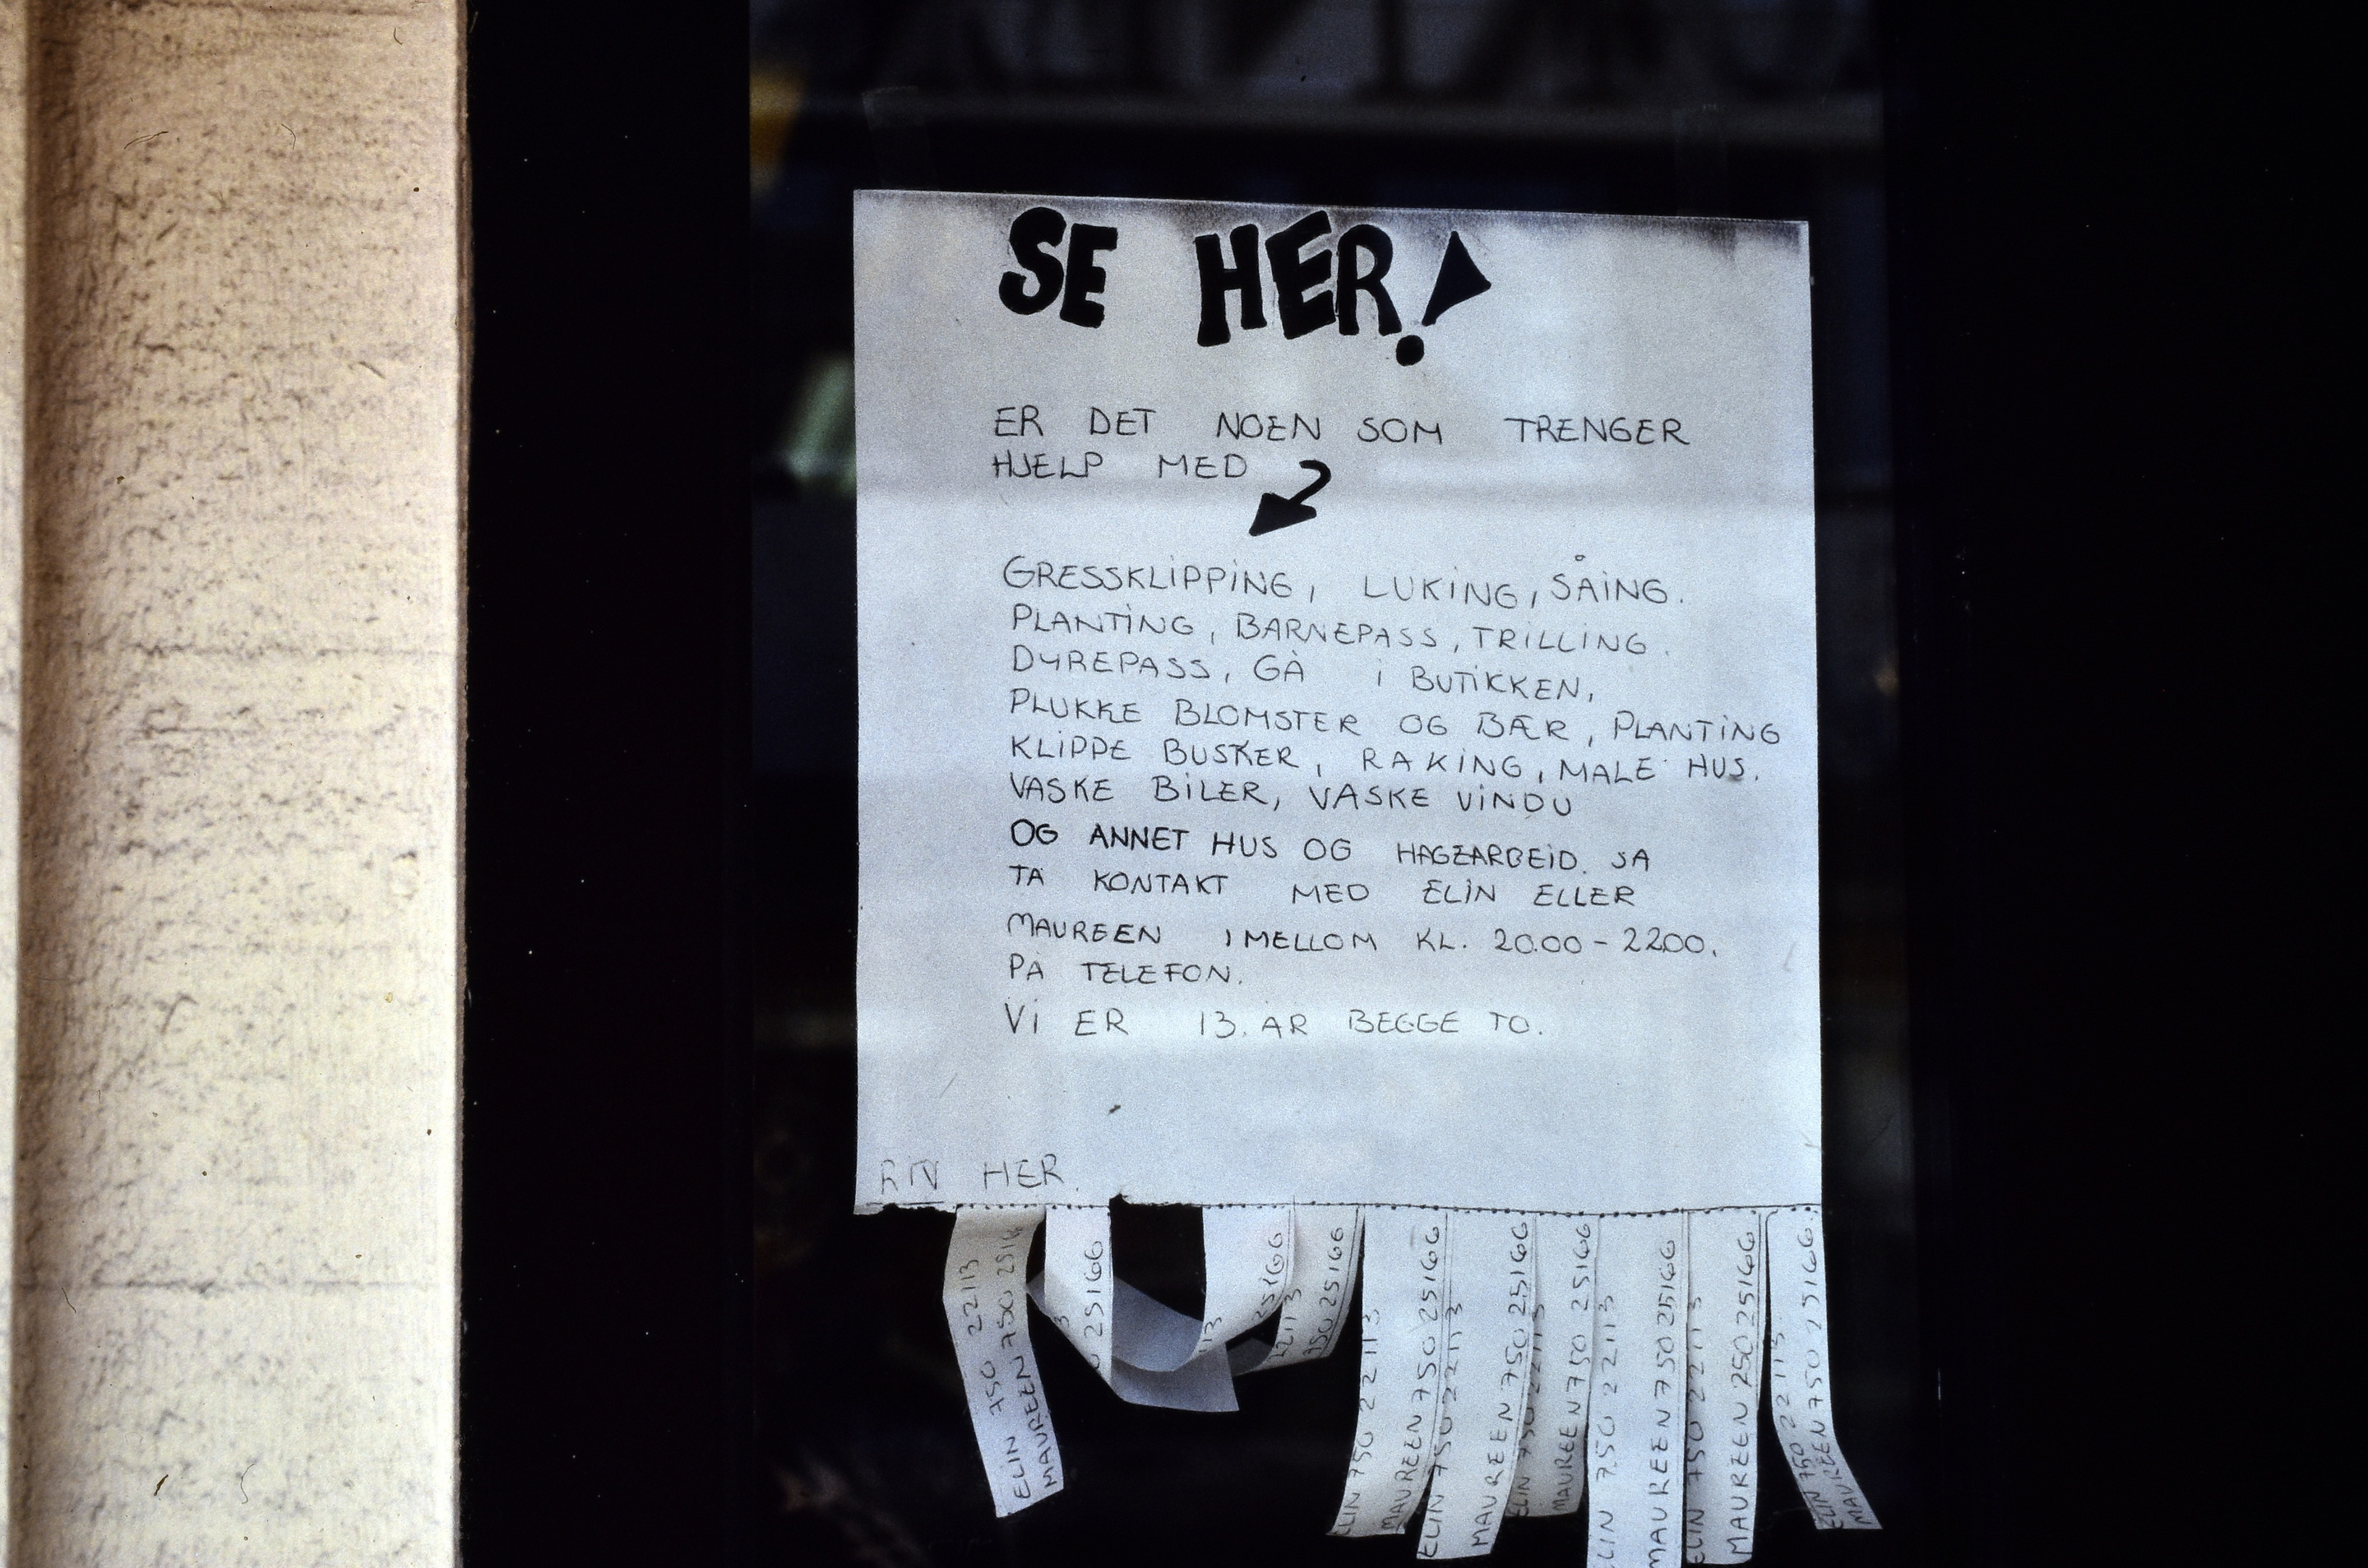 SE HER!
ER DET NOEN SOM TRENGER
HJELP MED
GRESSKLIPPING, LUKING, SÅING.
PLANTING, BARNEPASS, TRILLING.
DYREPASS, GÅ i BUTIKKEN,
PLUKKE BLOMSTER OG BÆR, PLANTING
KLIPPE BUSKER, RAKING, MALE HUS.
VASKE BILER, VASKE VINDU
OG ANNET HUS OG HAGEARBEID. SÅ
TA KONTAKT MED ELIN ELLER
MAUREEN IMELLOM KL. 20.00 - 22.00.
PÅ TELEFON.
Vi ER 13. ÅR BEGGE TO.
HER.
ELIN 750 22113
MAUREEN 750 2516
25166
25166
22113
750 25166
ELIN 750 22113
MAUREEN 750 25166
ELIN 750 22113
MAUREEN 750 25166
ELIN 750 22113
MAUREEN 750 25166
ELIN 750 22113
MAUREEN 750 25166
ELIN 750 22113
MAUREEN 250 25166
ELIN 750 22113
MAUREEN 750 25166